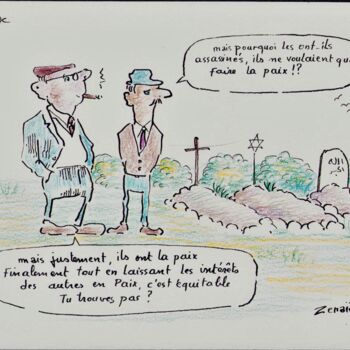 mais pourquoi les ont-ils
assassinés, ils ne voulaient que
faire la paix !?
mais justement, ils ont la paix
finalement tout en laissant les intérêts
des autres en Paix, c'est équitable
Tu trouves pas ?